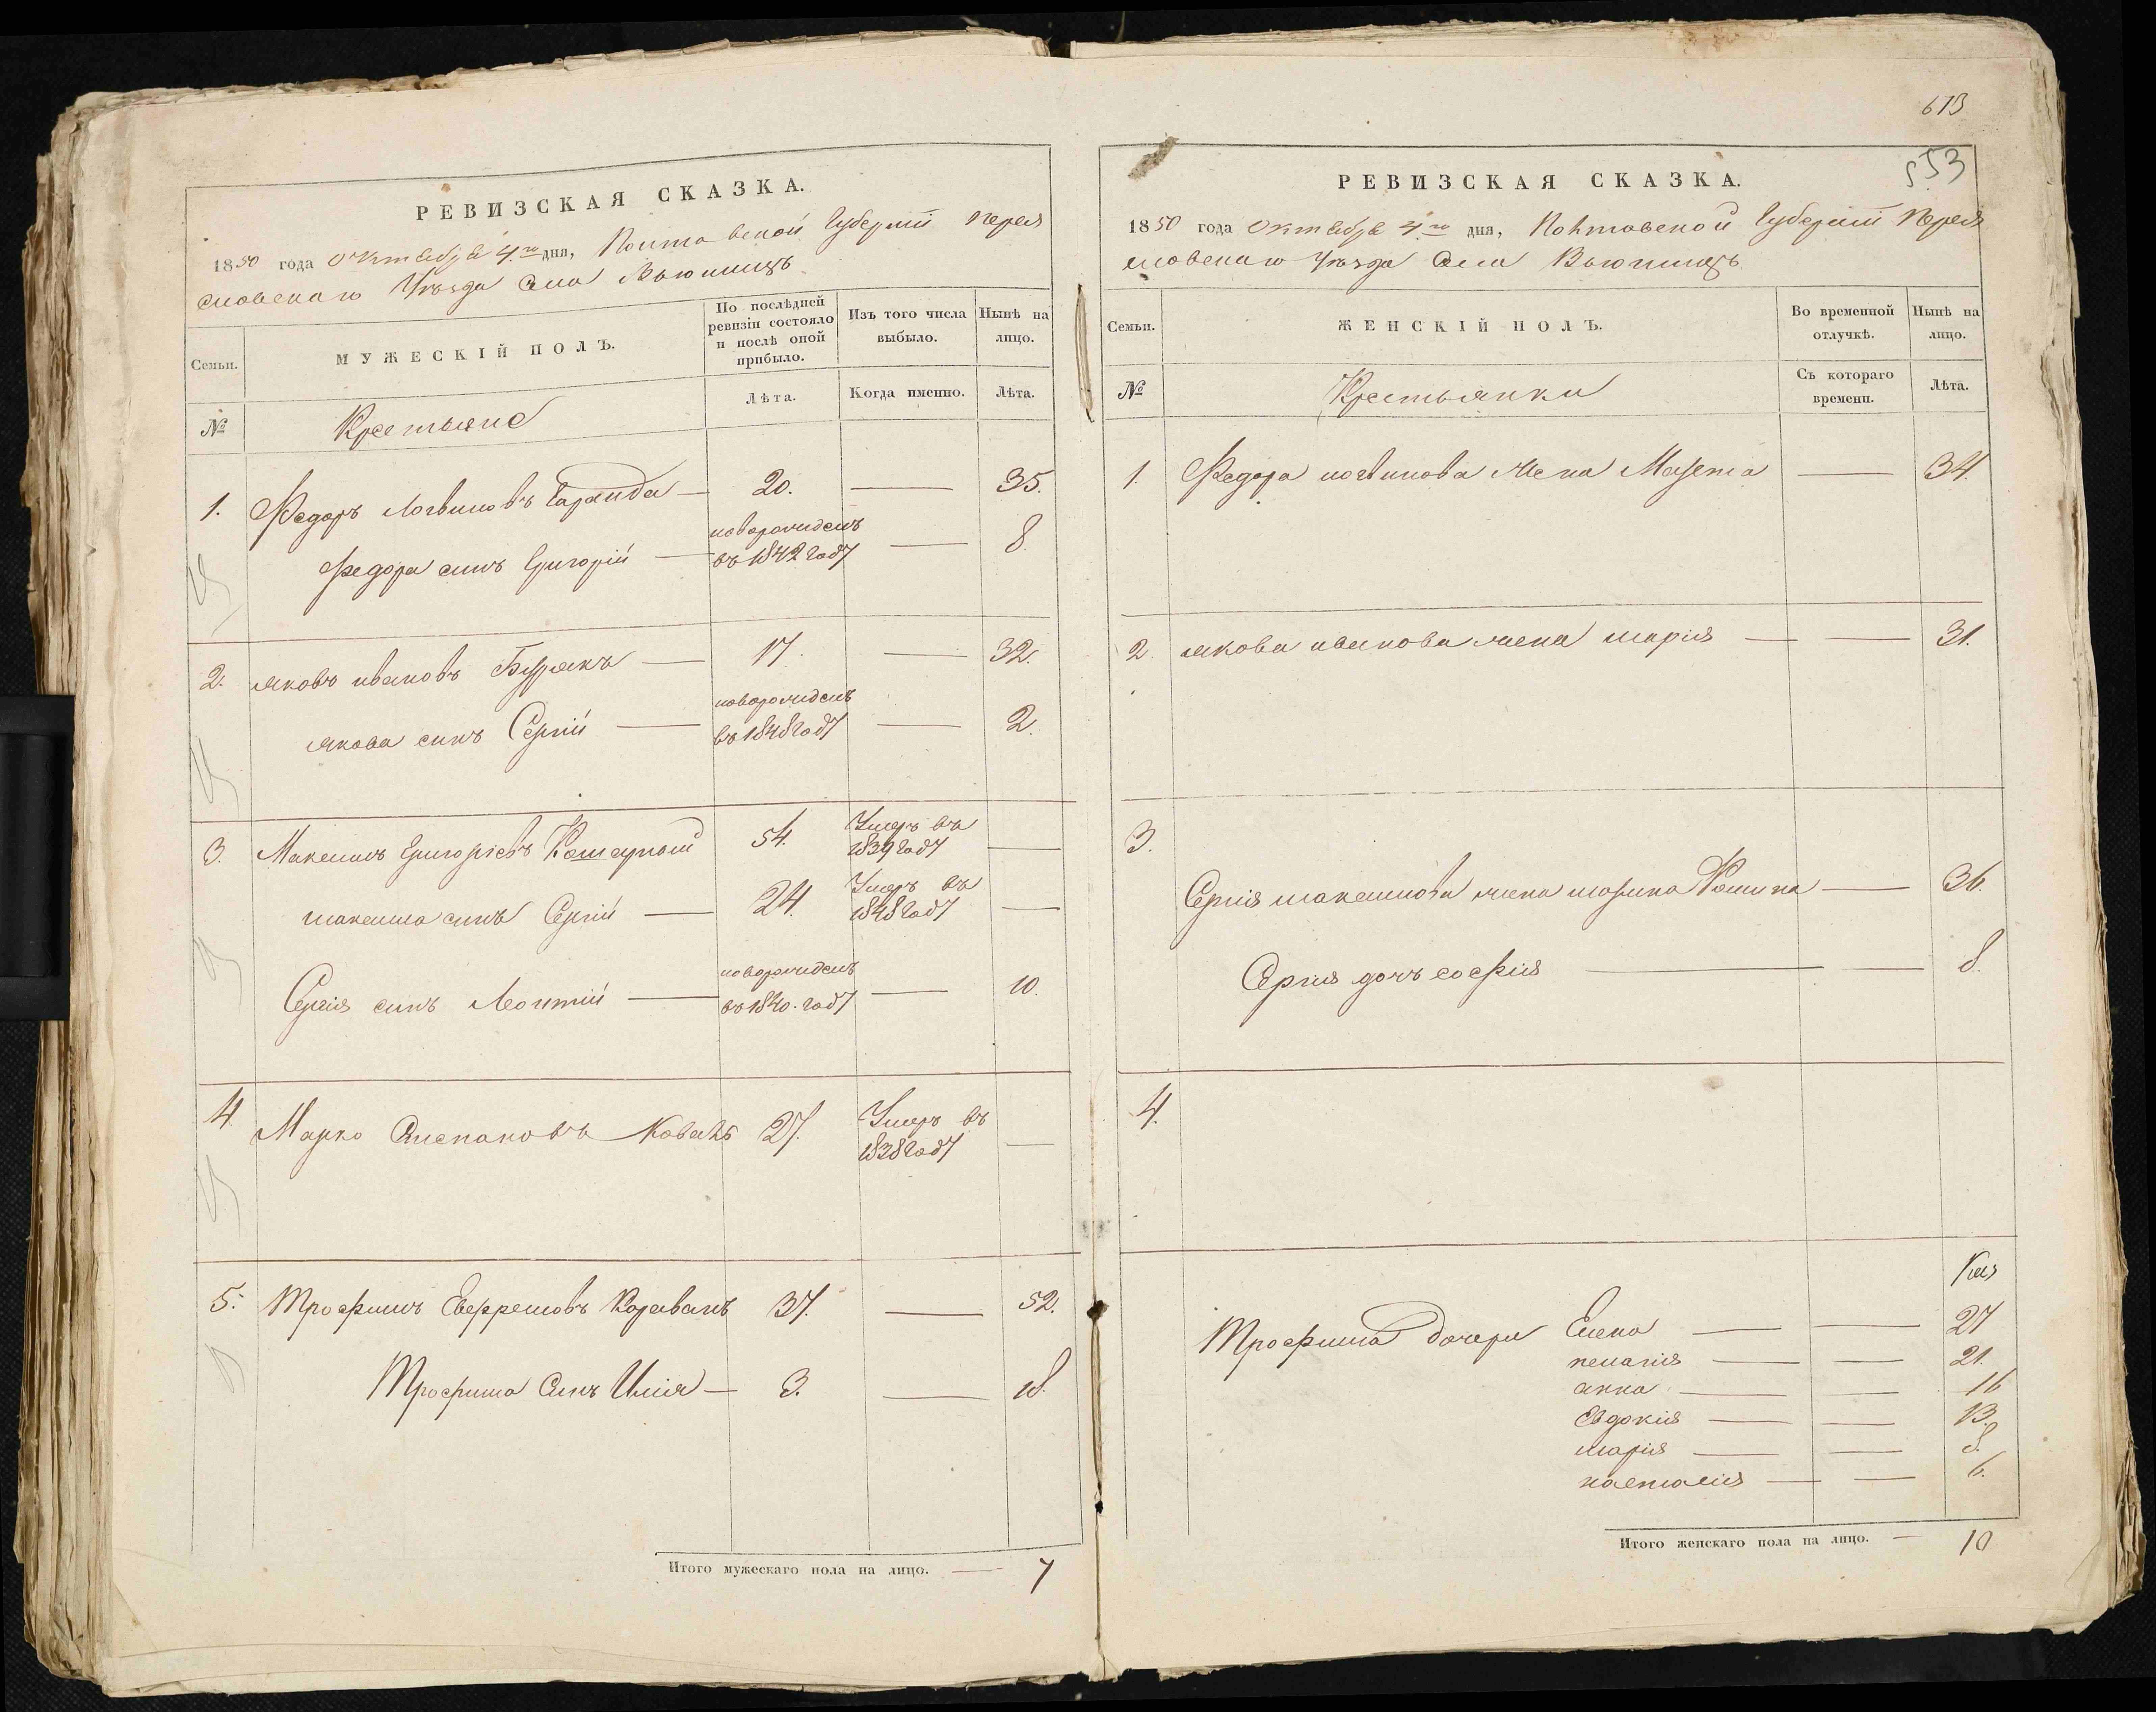 673
РЕВИЗСКАЯ СКАЗКА.
1850 года Октября 4го дня, Полтавской Губерніи Перея
словскаго Уѣзда Села Вьюнищъ
Семьи.
МУЖЕСКІЙ ПОЛЪ.
По послѣдней ревизіи состояло и послѣ оной прибыло.
Изъ того числа выбыло.
Нынѣ на лицо.
№
Крестьяне
Лѣта.
Когда именно.
Лѣта.
1. Федоръ Логвиновъ 20. — 35.
Федора сынъ Григорій — новорожденъ въ 1842 году — 8
2. яковъ ивановъ Бурякъ — 17. — 32.
якова сынъ Сергій — новорожденъ въ 1848 году — 2.
3. Максимъ Григоріевъ 54. Умеръ въ 1839 году —
максима сынъ Сергій — 24. Умеръ въ 1848 году —
Сергія сынъ Леонтій — новорожденъ въ 1840. году — 10.
4. Марко Степановъ Коваль 27. Умеръ въ 1838 году —
5. Трофимъ Евфремовъ Караванъ 37. — 52.
Трофима Сынъ Илія — 3. — 18.
Итого мужескаго пола на лицо. — 7
553
РЕВИЗСКАЯ СКАЗКА.
1850 года Октября 4го дня, Полтавской Губерніи Перея
словскаго Уѣзда Села Вьюнищъ
Семьи.
ЖЕНСКІЙ ПОЛЪ.
Во временной отлучкѣ.
Нынѣ на лицо.
№
Крестьянки
Съ котораго времени.
Лѣта.
1. Федора логвинова жена Марфа — 34.
2. якова иванова жена марія — — 31.
3.
Сергія максимова жена марина — 36.
Сергія дочь софія — — 8.
4.
Трофима дочери Елена — — 27
пелагія — — 21.
анна — — 16
Евдокія — — 13.
марія — — 8.
наталія — — 6.
Итого женскаго пола на лицо. — 10